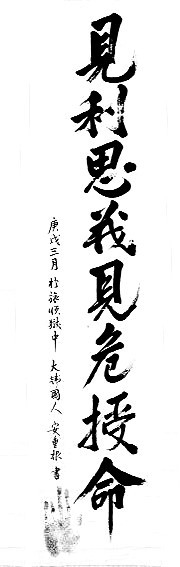 見利思義見危授命
庚戌三月 於旅順獄中 大韓國人 安重根 書